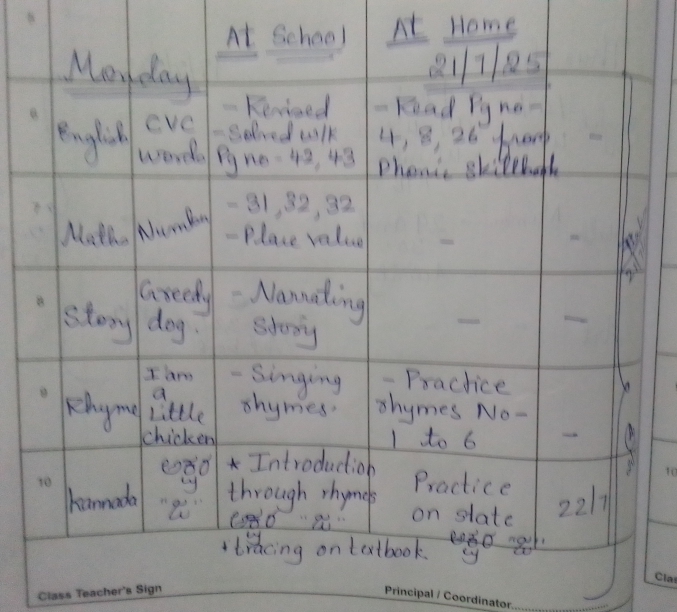 At School
At Home
Monday
21/7/25
6
English
CVC
words
- Revised
- Solved w/k
Pg no - 42, 43
- Read Pg no -
4, 8, 26 from
Phonic skillbook
-
7
Maths
Number
- 31, 32, 32
- Place value
-
-
8
Story
Greedy
dog.
- Narrating
story
-
-
9
Rhyme
I am
a
Little
chicken
- Singing
rhymes.
- Practice
rhymes No -
1 to 6
-
10
Kannada
* Introduction
through rhymes
* tracing on textbook
Practice
on slate
22/7
Class Teacher's Sign
Principal / Coordinator
10
Clas